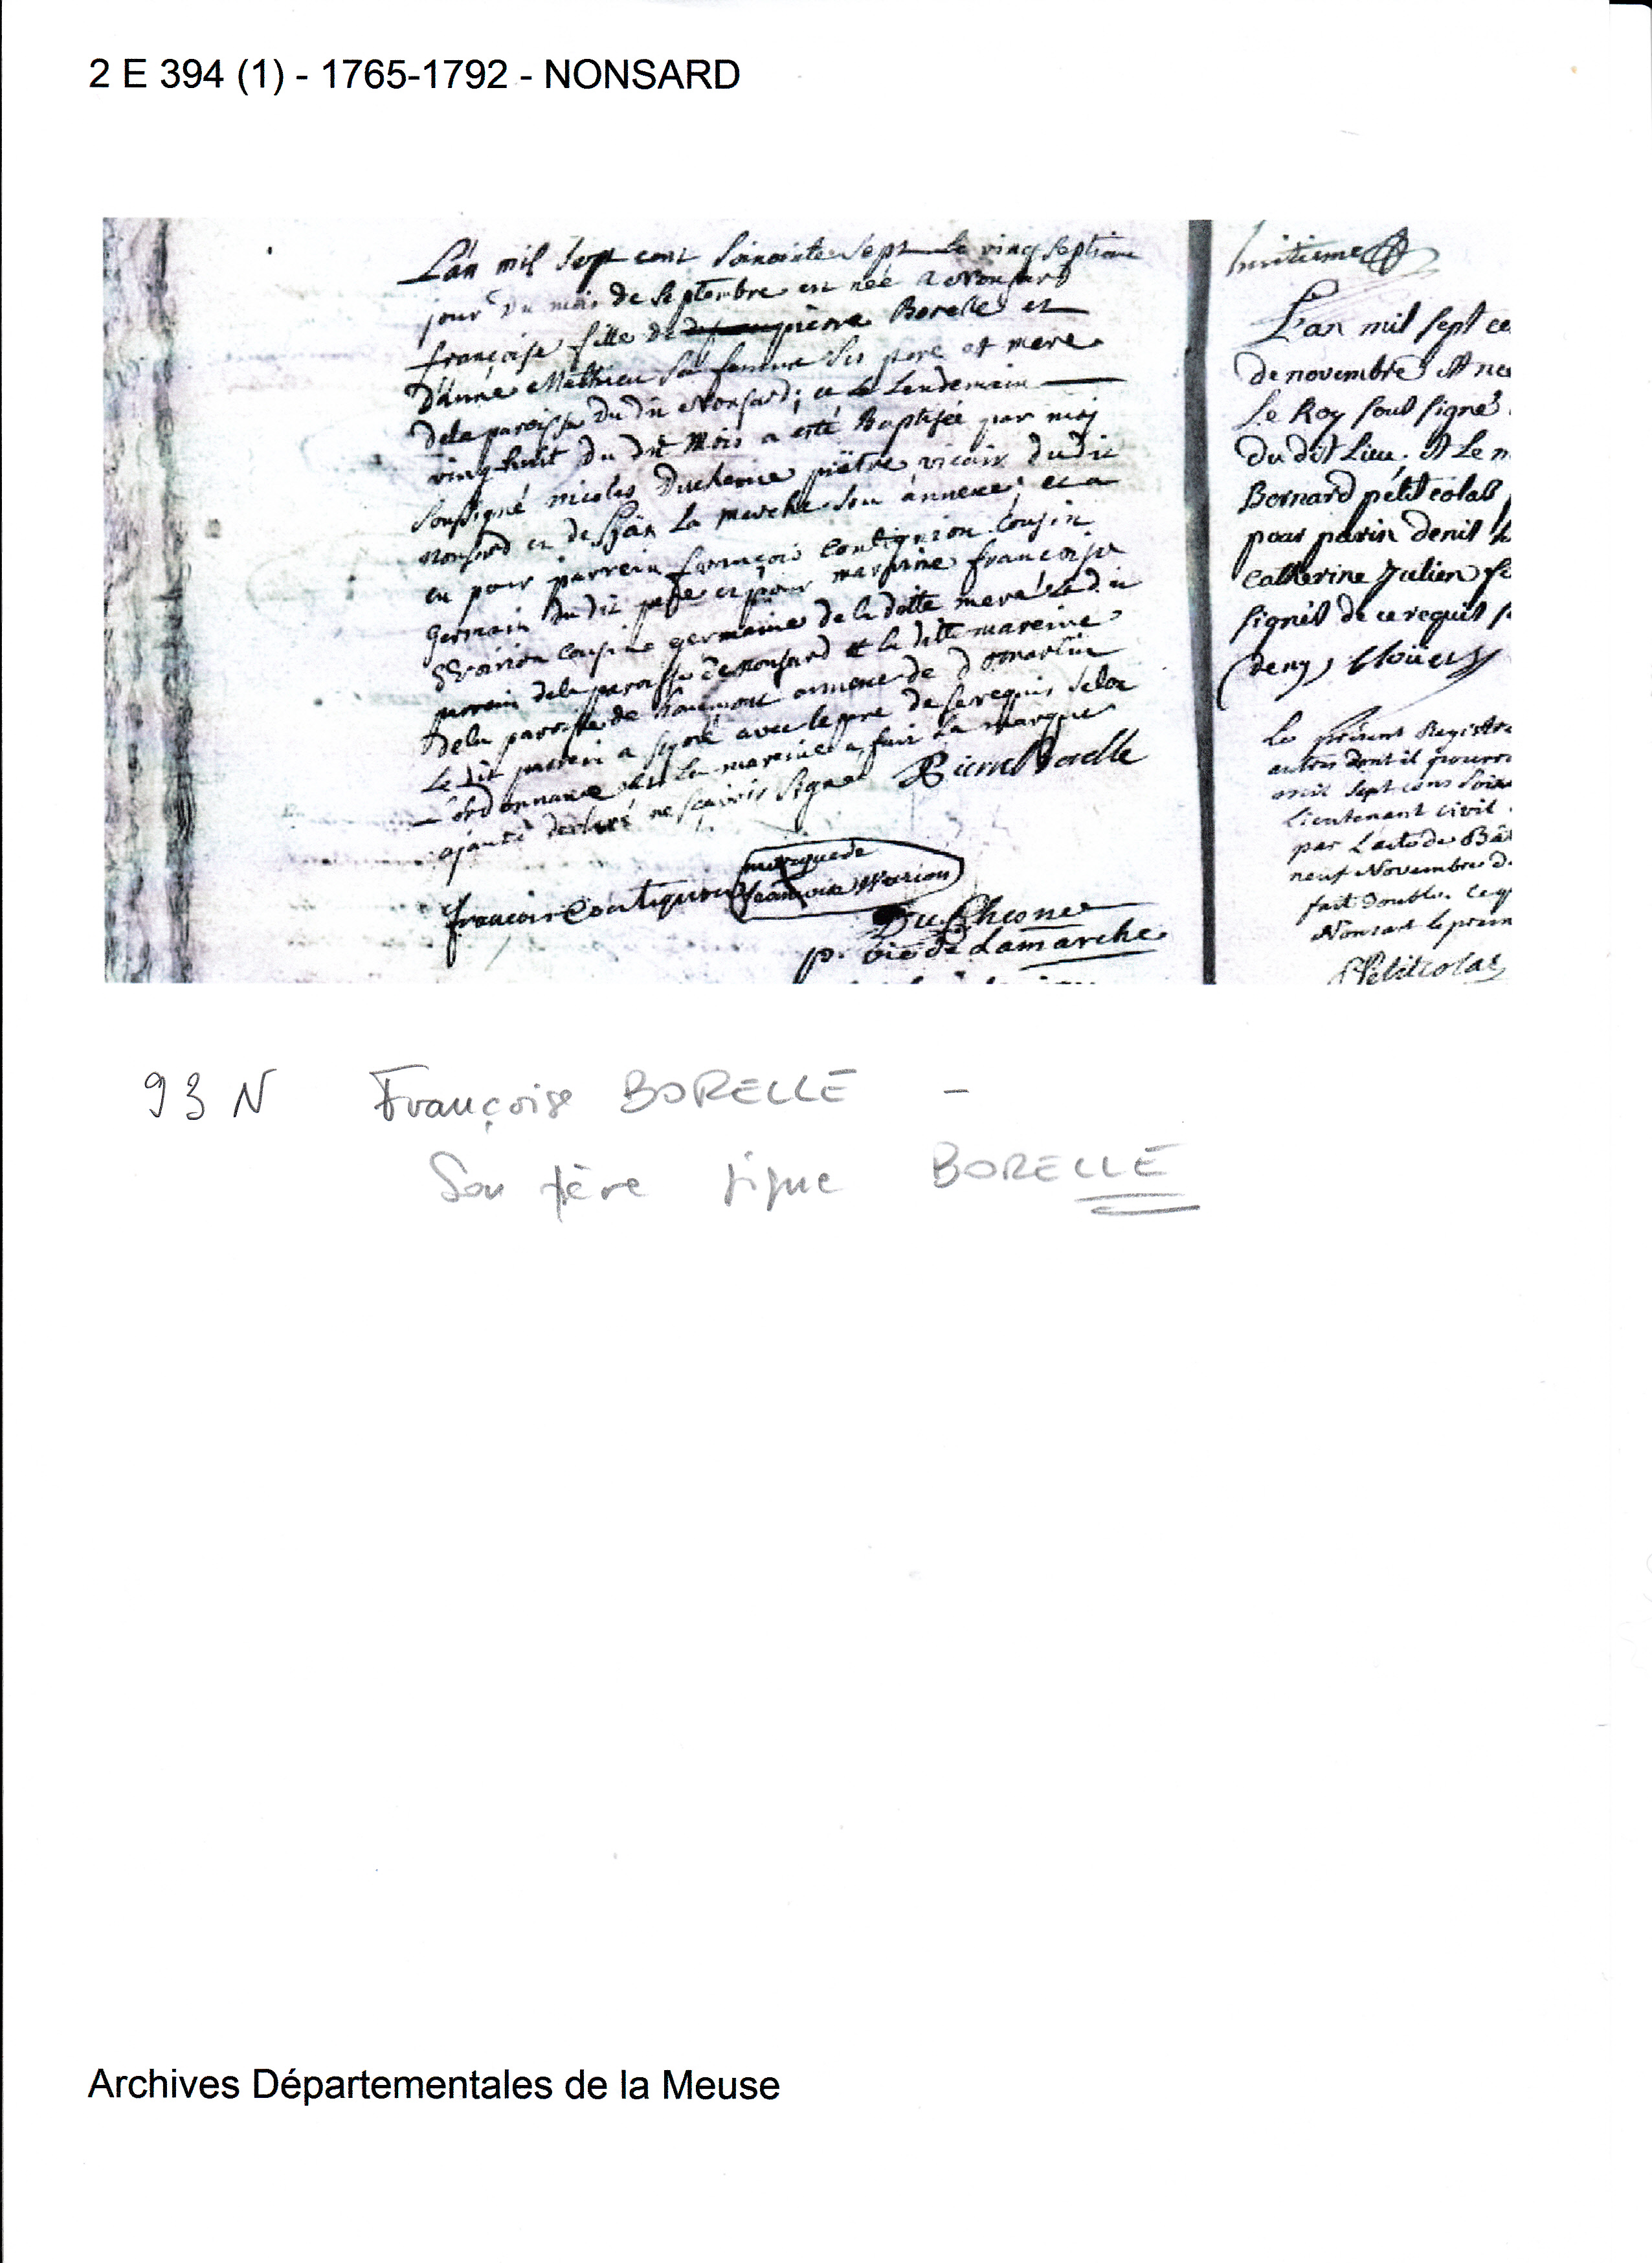 2 E 394 (1) - 1765-1792 - NONSARD
L'an mil sept cent soixante sept le vingt septieme
jour du mois de septembre est née a Nonsard
françoise fille de pierre Borelle et
D'anne Mathieu sa femme ses pere et mere
dela paroisse du dit Nonsard; et le Lendemain
vingt huit du dit Mois a esté Baptisée par moj
soussigné nicolas Ducheine prêtre vicair dudit
nonsard et de La marche son annexe; et a
eu pour parrein françois Contignion Cousin
Germain du dit pere et pour marreine francoise
Warion cousine germaine de la ditte mere Le dit
parrein dela paroisse de nonsard et la ditte mareine
dela paroisse de annexe de domartin
Le dit parrein a signé avec le pere de ce requis selon
L'ordonnance et La mareine a fait La marque
ajant declaré ne scavoir signer Pierre Borelle
francois Contignon
marque de
francoise Warion
Du Chesne
p. vic de Lamarche
huitieme
L'an mil sept ce
de novembre Est ne
Le Roy sous signé
du dit Lieu. Et Le m
Bernard petit colas
pour parin denis
Catherine Julien fe
signés de ce requis s
deny Cloüet
Le présent Registre
autres dont il pourro
mil sept cens soixa
Lieutenant civil
par L'acte de Ba
neuf Novembre d
fait double. Ce q
Nonsart le prem
Petitcolas
93 N Françoise BORELLE -
Son père signe BORELLE
Archives Départementales de la Meuse